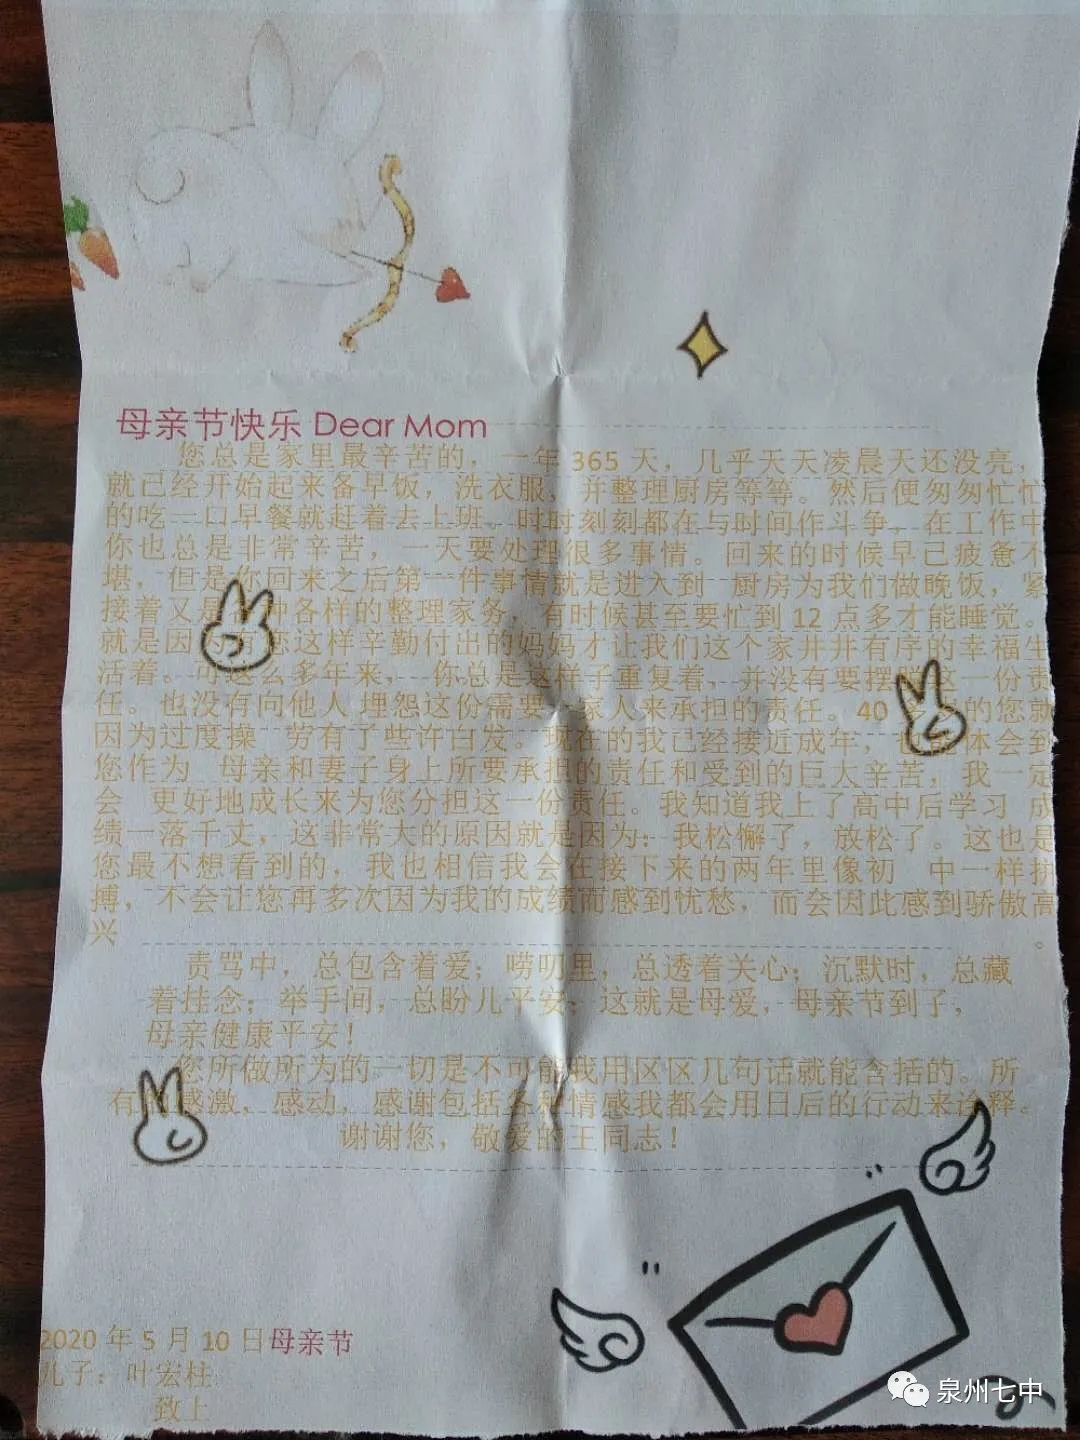 母亲节快乐 Dear Mom
您总是家里最辛苦的，一年 365 天，几乎天天凌晨天还没亮，
就已经开始起来备早饭，洗衣服，并整理厨房等等。然后便匆匆忙忙
的吃一口早餐就赶着去上班。时时刻刻都在与时间作斗争。在工作中
你也总是非常辛苦，一天要处理很多事情。回来的时候早已疲惫不
堪，但是你回来之后第一件事情就是进入到 厨房为我们做晚饭，紧
接着又是 种各样的整理家务，有时候甚至要忙到 12 点多才能睡觉。
就是因 您这样辛勤付出的妈妈才让我们这个家井井有序的幸福生
活着。可这么多年来， 你总是这样子重复着，并没有要摆 一份责
任。也没有向他人埋怨这份需要 家人来承担的责任。40 的您就
因为过度操 劳有了些许白发。现在的我已经接近成年， 体会到
您作为 母亲和妻子身上所要承担的责任和受到的巨大辛苦，我一定
会 更好地成长来为您分担这一份责任。我知道我上了高中后学习 成
绩一落千丈，这非常大的原因就是因为：我松懈了，放松了。这也是
您最不想看到的，我也相信我会在接下来的两年里像初 中一样拼
搏，不会让您再多次因为我的成绩而感到忧愁，而会因此感到骄傲高
兴。
责骂中，总包含着爱；唠叨里，总透着关心；沉默时，总藏
着挂念；举手间，总盼儿平安；这就是母爱，母亲节到了，
母亲健康平安！
您所做所为的一切是不可能我用区区几句话就能含括的。所
有 感激，感动，感谢包括各种情感我都会用日后的行动来诠释。
谢谢您，敬爱的王同志！
2020 年 5 月 10 日母亲节
儿子：叶宏柱
致上
泉州七中